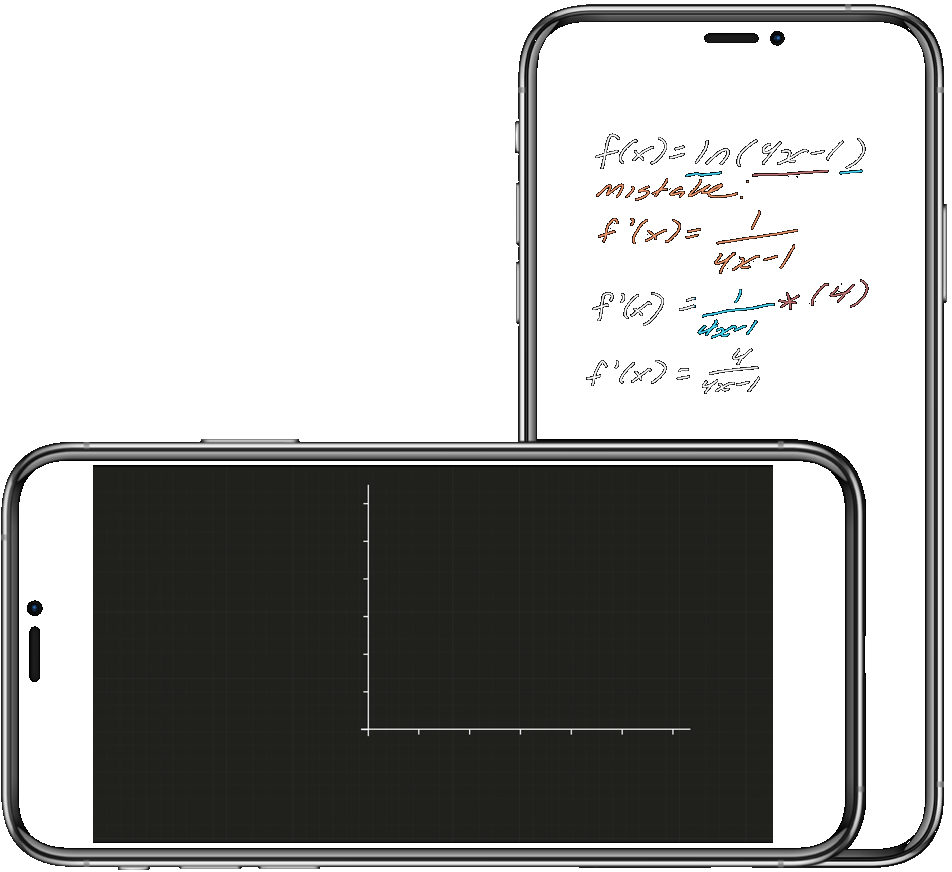 f(x) = ln(4x-1)
mistake:
f'(x) = 1/(4x-1)
f'(x) = 1/(4x-1) * (4)
f'(x) = 4/(4x-1)